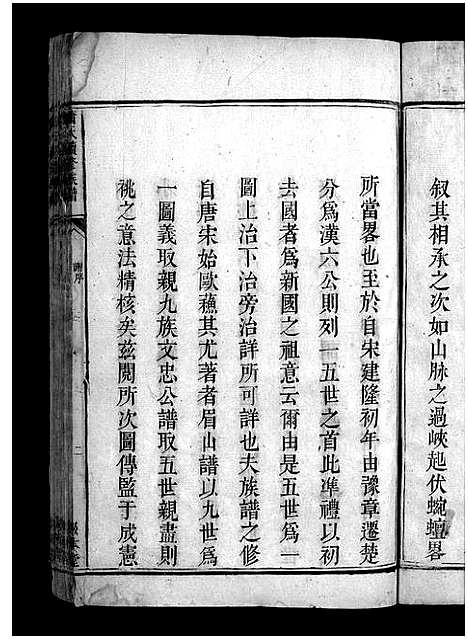 叙其相承之次如山脉之過峽起伏蜿蟺畧
所當畧也至於自宋建隆初年由豫章遷楚
分爲漢六公則列一五世之首此準禮以初
去國者爲新國之祖意云爾由是五世爲一
圖上治下治旁治詳所可詳也夫族譜之修
自唐宋始歐蘓其尤著者眉山譜以九世爲
一圖義取親九族文忠公譜取五世親盡則
祧之意法精核矣茲閱所次圖傳監于成憲